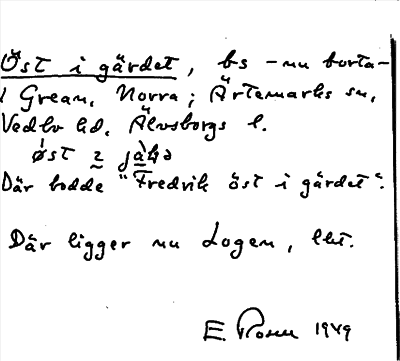 Öst i gärdet, bs - nu borta -
i Grean, Norra; Ärtemarks sn,
Vedbo hd, Älvsborgs l.
Där bodde "Fredrik öst i gärdet".
Där ligger nu Logen, lht.
E. Rosen 1949